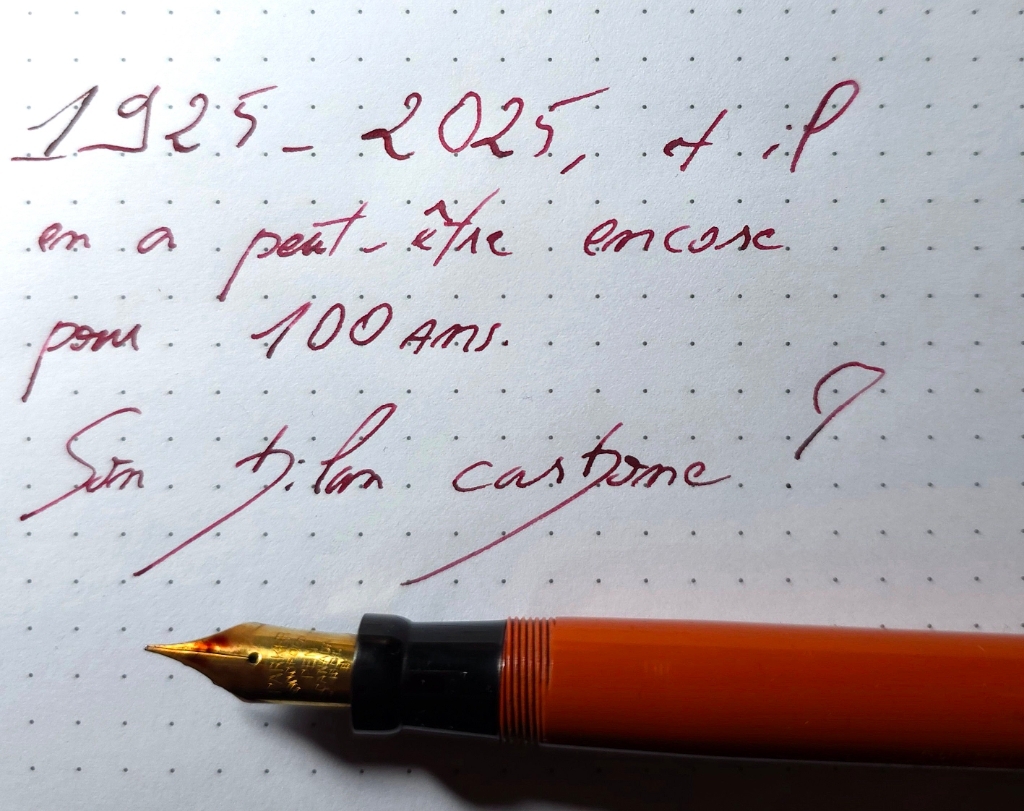 1925 - 2025, et il
en a peut-être encore
pour 100 ans.
Son bilan carbone ?
PARKER